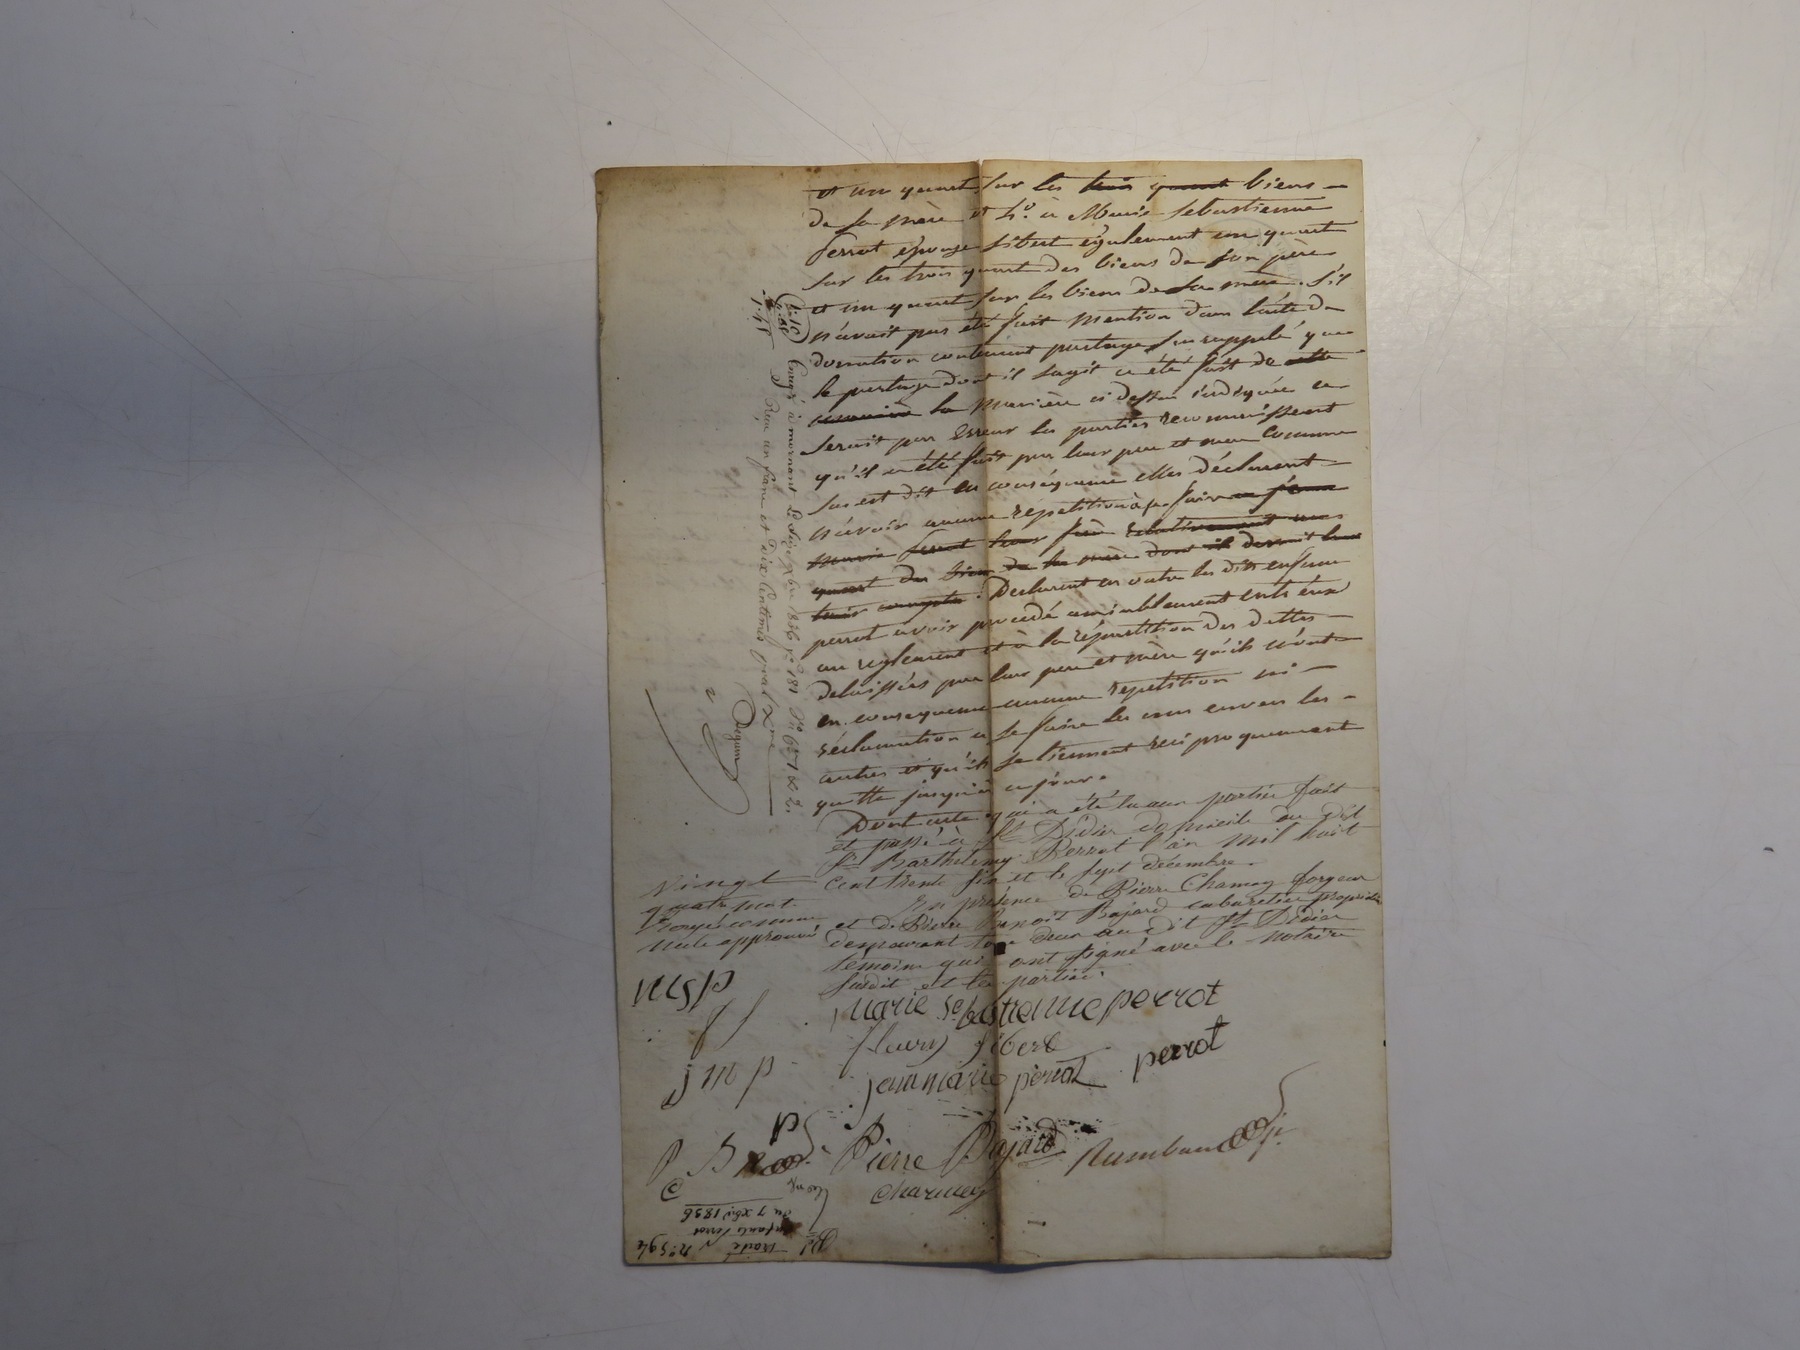 et un quart sur les trois quart biens
de sa mère et 4.° à Marie Sebastienne
Perrot épouse Sibert également un quart
sur les trois quart des biens de son père
et un quart sur les biens de sa mère. S'il
n'avait pas été fait mention dans l'acte de
donation contenant partage sus rappelé que
le partage dont il sagit a été fait de cette
manière la manière ci dessus indiquée ce
serait par erreur les parties reconnaissent
qu'il a été fait par leur père et mère comme
sus est dit en conséquence elles déclarent
n'avoir aucune répétition à se faire a Jean
Marie Perrot leur frère relativement au
quart des biens de la mère dont il devait leur
tenir compte. Déclarent en outre les dits enfans
perrot avoir procédé amiablement entr'eux
au reglement et à la répartition des dettes
delaissées par leur père et mère qu'ils n'ont
en conséquence aucune repetition ni
réclamation a se faire les uns envers les
autres et qu'ils se tiennent réciproquement
quitte jusqu'à ce jour.
Dont acte qui a été lu aux parties fait
et passé à St Didier domicile du dit
Sr Barthélemy Perrot l'an mil huit
cent trente six et le sept décembre.
En présence de Pierre Charney forgeur
et de Pierre Benoit Bajard cabaretier propriétaire
demeurant tous deux au dit St Didier
témoins qui ont signé avec le notaire
susdit et les parties.
Vingt
quatre mots
rayés comme
nuls approuvé
msp
fs
jmp
p
P B
C
marie sebastienne perrot
fleury sibert
jean marie perrot perrot
Pierre Bajard
Charney
Enregé à mornant le dix xbre 1836 f° 181 r° c 1 et 2.
Reçu un franc et dix centimes pour l xme
1.10
1.
n° 594
traité
enfants Perrot
du 7 xbre 1836